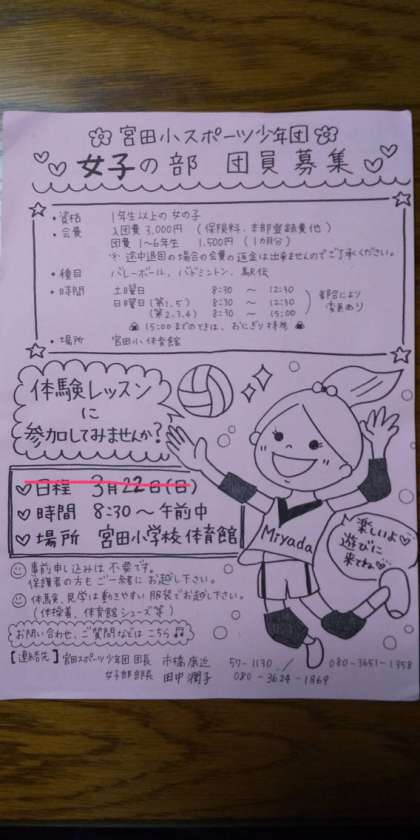 宮田小スポーツ少年団
女子の部 団員募集
・資格 1年生以上の女の子
・会費 入団費 3,000円 (保険料、本部登録費他)
団費 1〜6年生 1,500円 (1カ月分)
※ 途中退団の場合の会費の返金は出来ませんのでご了承ください。
・種目 バレーボール、バドミントン、駅伝
・時間 土曜日 8:30 〜 12:30
日曜日 (第1.5) 8:30 〜 12:30
(第2.3.4) 8:30 〜 15:00
都合により
変更あり
15:00までのときは、おにぎり持参
・場所 宮田小体育館
体験レッスン
に
参加してみませんか?
日程 3月22日(日)
時間 8:30〜午前中
場所 宮田小学校体育館
Miyada
楽しいよ
遊びに
来てね
事前申し込みは不要です。
保護者の方もご一緒にお越し下さい。
体験、見学は動きやすい服装でお越し下さい。
(体操着、体育館シューズ等)
お問い合わせ、ご質問などはこちら
【連絡先】宮田スポーツ少年団 団長 市橋 57-1130 / 080-3651-1358
女子部部長 田中潤子 080-3624-1869